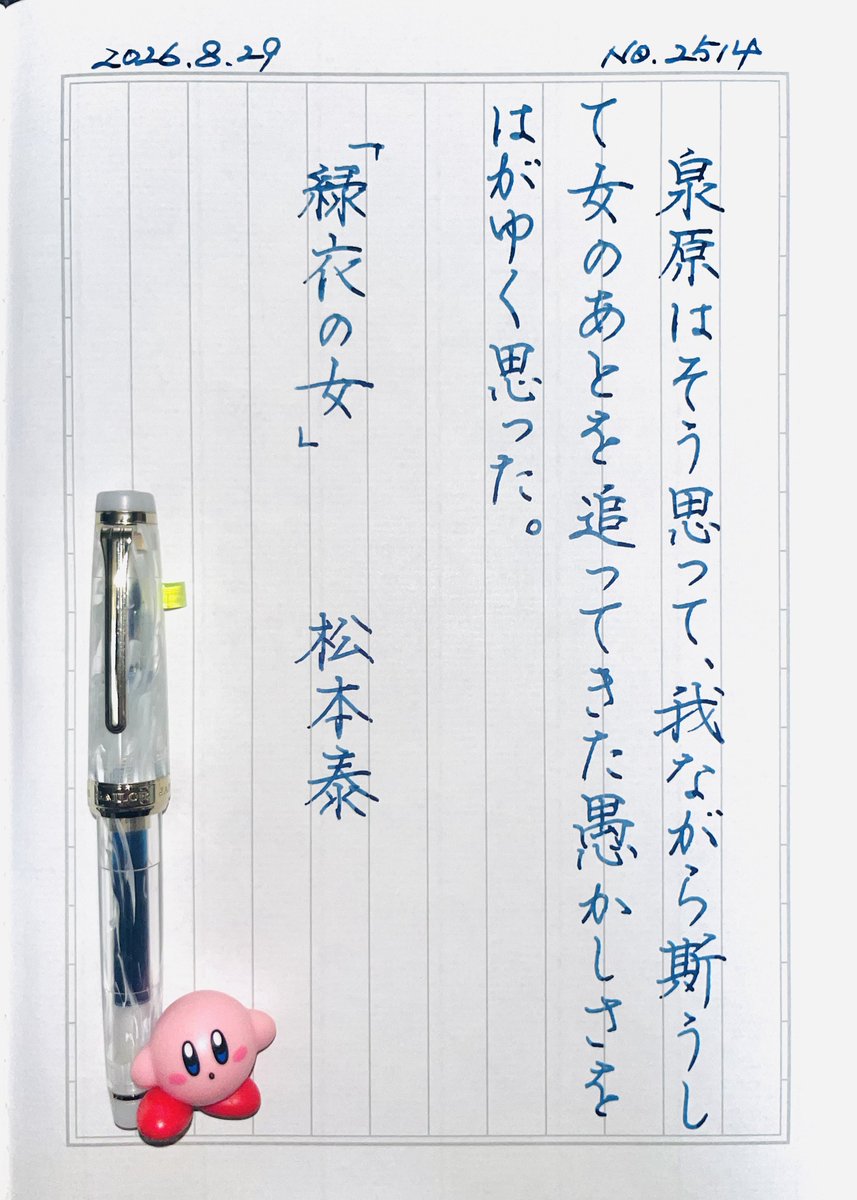 2026.8.29
NO.2514
泉原はそう思って、我ながら斯うし
て女のあとを追ってきた愚かしさを
はがゆく思った。
「緑衣の女」　松本泰